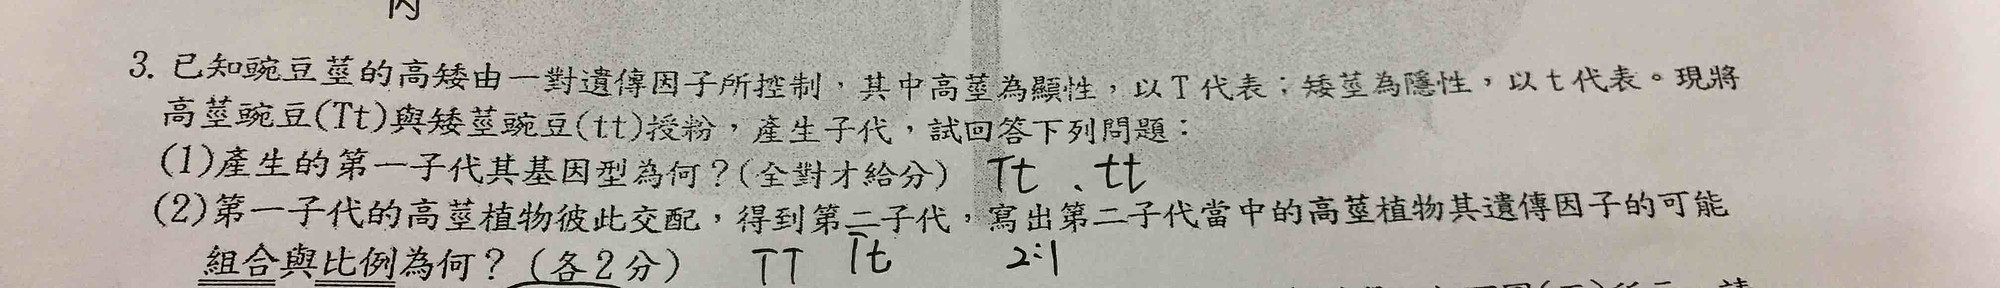 3. 已知豌豆莖的高矮由一對遺傳因子所控制，其中高莖為顯性，以T代表；矮莖為隱性，以t代表。現將
高莖豌豆(Tt)與矮莖豌豆(tt)授粉，產生子代，試回答下列問題：
(1)產生的第一子代其基因型為何？(全對才給分) Tt、tt
(2)第一子代的高莖植物彼此交配，得到第二子代，寫出第二子代當中的高莖植物其遺傳因子的可能
組合與比例為何？(各2分) TT Tt 2:1